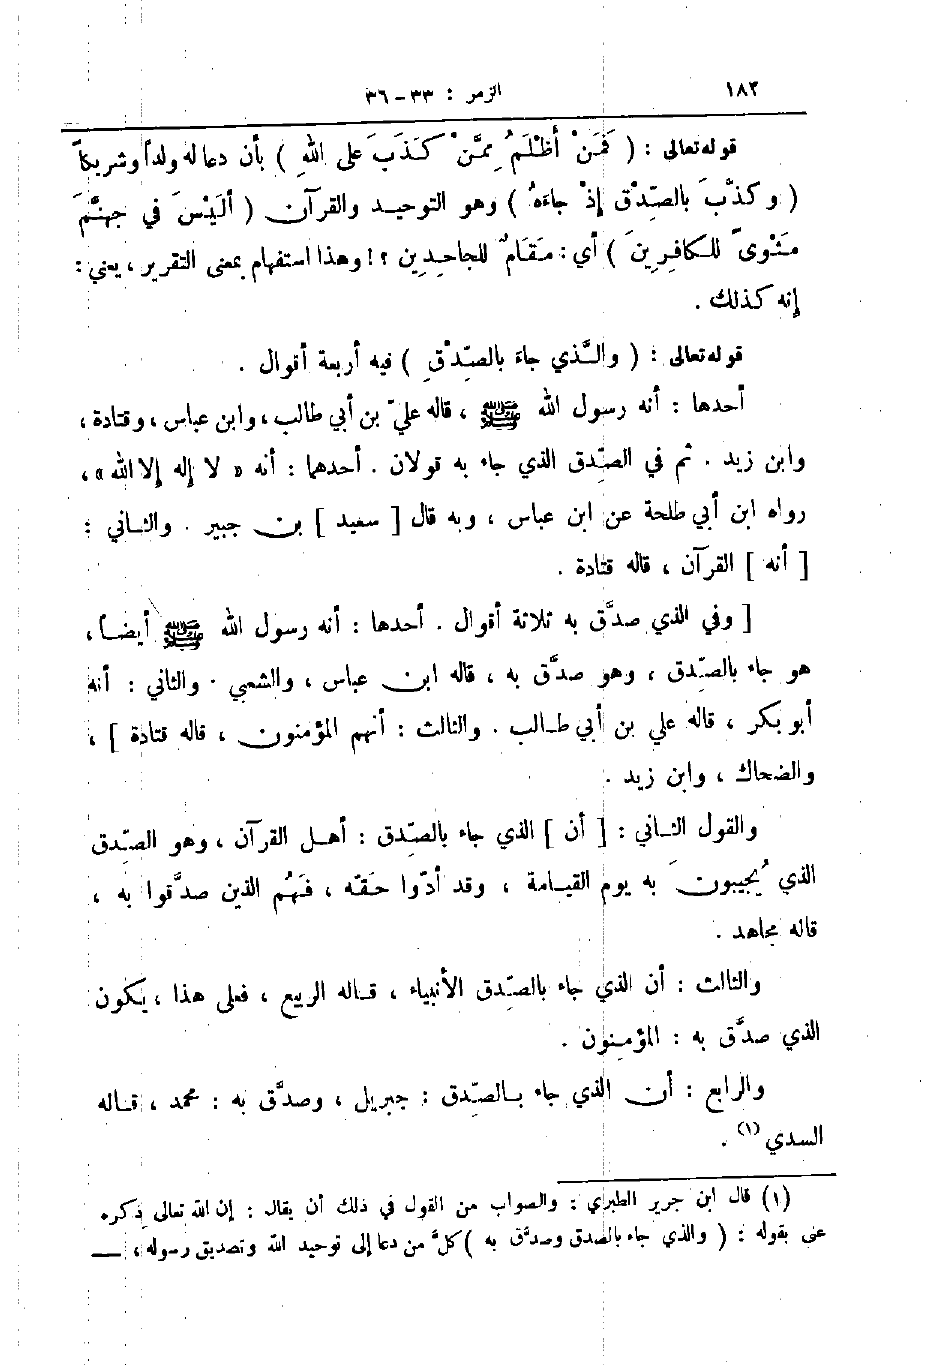 ١٨٢ الزمر : ٣٣ـ٣٦
قوله تعالى : ( فَمَنْ أَظْلَمُ مِمَّنْ كَذَبَ على اللهِ ) بأن دعا له ولداً وشريكاً
( وكذَّبَ بالصِّدْق إذْ جاءَهُ ) وهو التوحيد والقرآن ( ألَيْسَ في جهنَّمَ
مَثْوىً للكافِرِينَ ) أي : مَقَامٌ للجاحِدِين ؟! وهذا استفهام بمعنى التقرير ، يعني :
إنه كذلك .
قوله تعالى : ( والَّذي جاءَ بالصِّدْقِ ) فيه أربعة أقوال .
أحدها : أنه رسول الله ﷺ ، قاله عليّ بن أبي طالب ، وابن عباس ، وقتادة ،
وابن زيد . ثم في الصِّدق الذي جاء به قولان . أحدهما : أنه « لا إله إلا الله » ،
رواه ابن أبي طلحة عن ابن عباس ، وبه قال [ سعيد ] بن جبير . والثاني :
[ أنه ] القرآن ، قاله قتادة .
[ وفي الذي صدَّق به ثلاثة أقوال . أحدها : أنه رسول الله ﷺ أيضاً ،
هو جاء بالصِّدق ، وهو صدَّق به ، قاله ابن عباس ، والشعبي . والثاني : أنه
أبو بكر ، قاله علي بن أبي طالب . والثالث : أنهم المؤمنون ، قاله قتادة ] ،
والضحاك ، وابن زيد .
والقول الثاني : [ أن ] الذي جاء بالصِّدق : أهل القرآن ، وهو الصِّدق
الذي يُجيبونَ به يوم القيامة ، وقد أدّوا حَقَّه ، فَهُم الذين صدَّقوا به ،
قاله مجاهد .
والثالث : أن الذي جاء بالصِّدق الأنبياء ، قاله الربيع ، فعلى هذا ، يكون
الذي صدَّق به : المؤمنون .
والرابع : أن الذي جاء بالصِّدق : جبريل ، وصدَّق به : محمد ، قاله
السدي (١) .
(١) قال ابن جرير الطبري : والصواب من القول في ذلك أن يقال : إن الله تعالى ذكره
عنى بقوله : ( والذي جاء بالصدق وصدَّق به ) كلَّ من دعا إلى توحيد الله وتصديق رسوله ، ــ